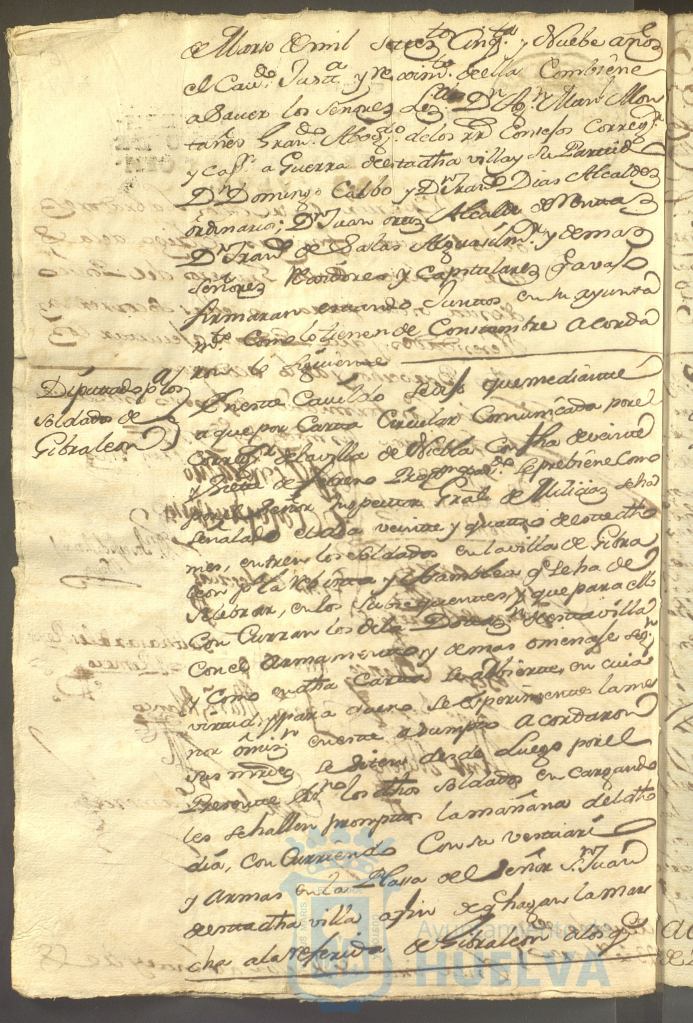 de Marzo de mil setez.tos Cinq.ta y Nuebe años
el Cav.do Just.a y reximt.o de ella Combiene
a Saver los Señores Lz.do D.n Ag.n Man.l Mon
tañes Gran.do Abog.do de los rr.s Consejos Correg.r
y Cap.n a Guerra de esta dha villa y su Partido
D.n Domingo Calbo y D.n Fran.co Dias Alcaldes
ordinarios; D.n Juan ortiz Alcalde de
D.n Fran.co de Salas Alguasil m.r y demas
Señores rexidores y Capitulares q avaxo
firmaran estando Juntos en su ayunta
m.to Como lo tienen de Constumbre acorda
ron lo siguiente
Diputado p.a los
Soldados de
Gibraleon
En este Cavildo se dijo que mediante
a que por Carta Circular Comunicada por el
Correg.r de la villa de Niebla Con fha de veinte
y de febrero Prox.mo se prebiene Como
por el Señor Inspector Gral de Milicias se ha
señalado el dia veinte y quatro de este dho
mes, entren los soldados en la villa de Gibra
leon p.a la rebista y Asamblea q.e se ha de
Selebrar, en los Subsequentes, y que para ello
Con Curran los de la de esta villa
Con el armamento y demas omenaje seg.n
y Como en dha Carta se adbierte, en cuia
virtud, y para que no se experimente la me
nor omiz.n en este asumpto acordaron
sus mrds se sitens desde Luego por el
Presente los dhos soldados en cargando
les se hallen promptos la mañana del dho
dia, con Curriendo Con su
y armas en la Plasa del Señor S.n Juan
de esta dha villa a fin de q.e hagan la mar
cha a la referida de Gibraleon a los
Ayuntamiento de
HUELVA